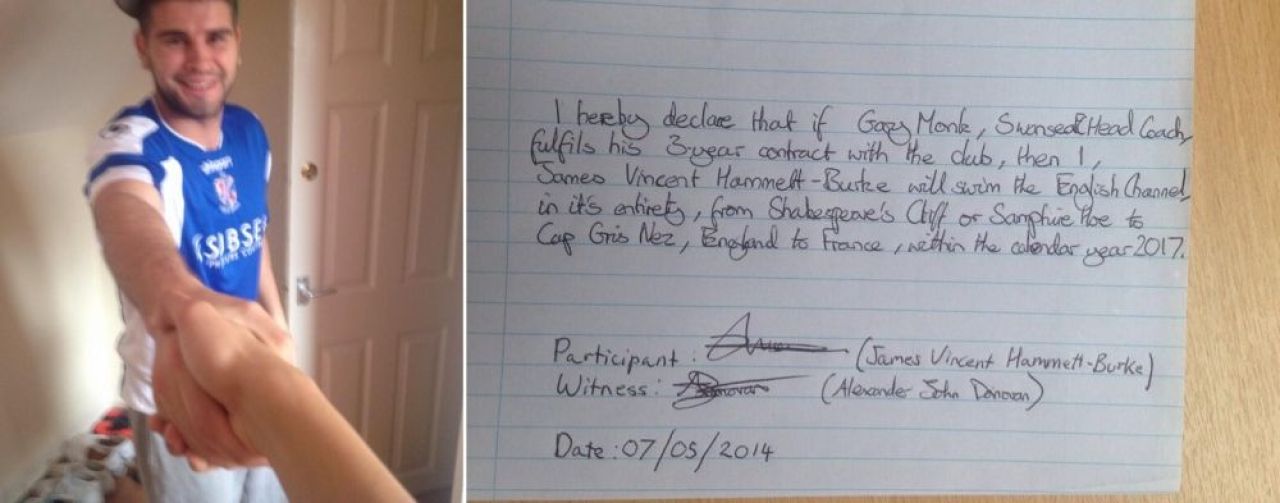 SUBSE
I hereby declare that if Gary Monk, Swansea Head Coach,
fulfils his 3-year contract with the club, then I,
James Vincent Hammett-Burke will swim the English Channel,
in it's entirety, from Shakespeare's Cliff or Samphire Hoe to
Cap Gris Nez, England to France, within the calendar year 2017.
Participant: (James Vincent Hammett-Burke)
Witness: Donovan (Alexander John Donovan)
Date: 07/05/2014